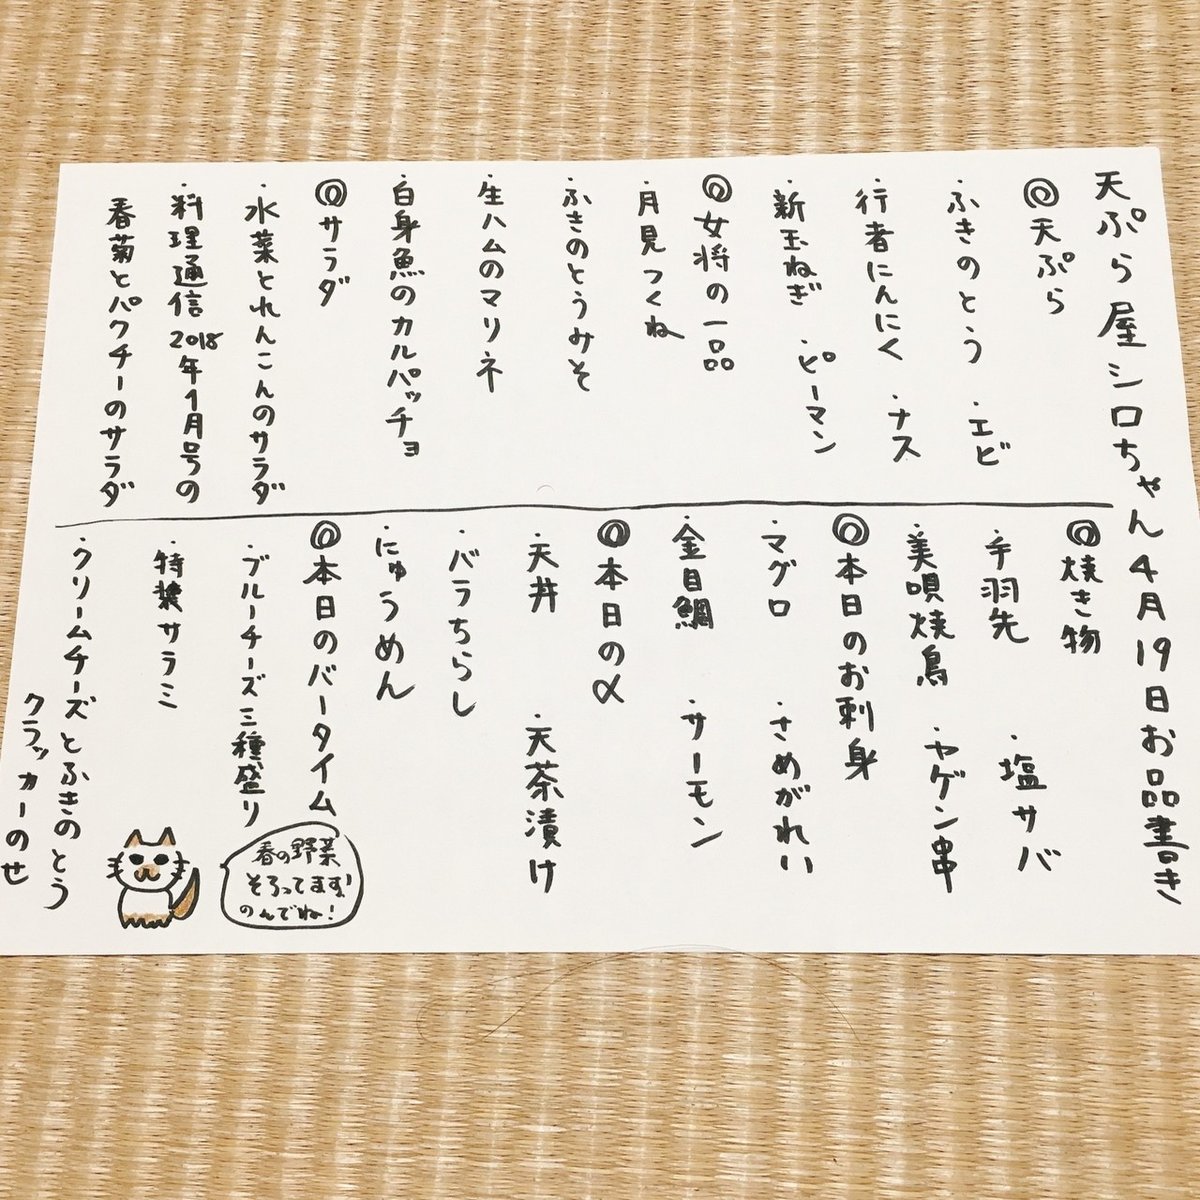 天ぷら屋シロちゃん4月19日お品書き
◎天ぷら
・ふきのとう ・エビ
・行者にんにく ・ナス
・新玉ねぎ ・ピーマン
◎女将の一品
・月見つくね
・ふきのとうみそ
・生ハムのマリネ
・白身魚のカルパッチョ
◎サラダ
・水菜とれんこんのサラダ
・料理通信2018年1月号の
春菊とパクチーのサラダ
◎焼き物
・手羽先 ・塩サバ
・美唄焼鳥 ・ヤゲン串
◎本日のお刺身
・マグロ ・さめがれい
・金目鯛 ・サーモン
◎本日の〆
・天丼 ・天茶漬け
・バラちらし
・にゅうめん
◎本日のバータイム
・ブルーチーズ三種盛り
・特撰サラミ
・クリームチーズとふきのとう
クラッカーのせ
春の野菜
そろってます!
のんでね!